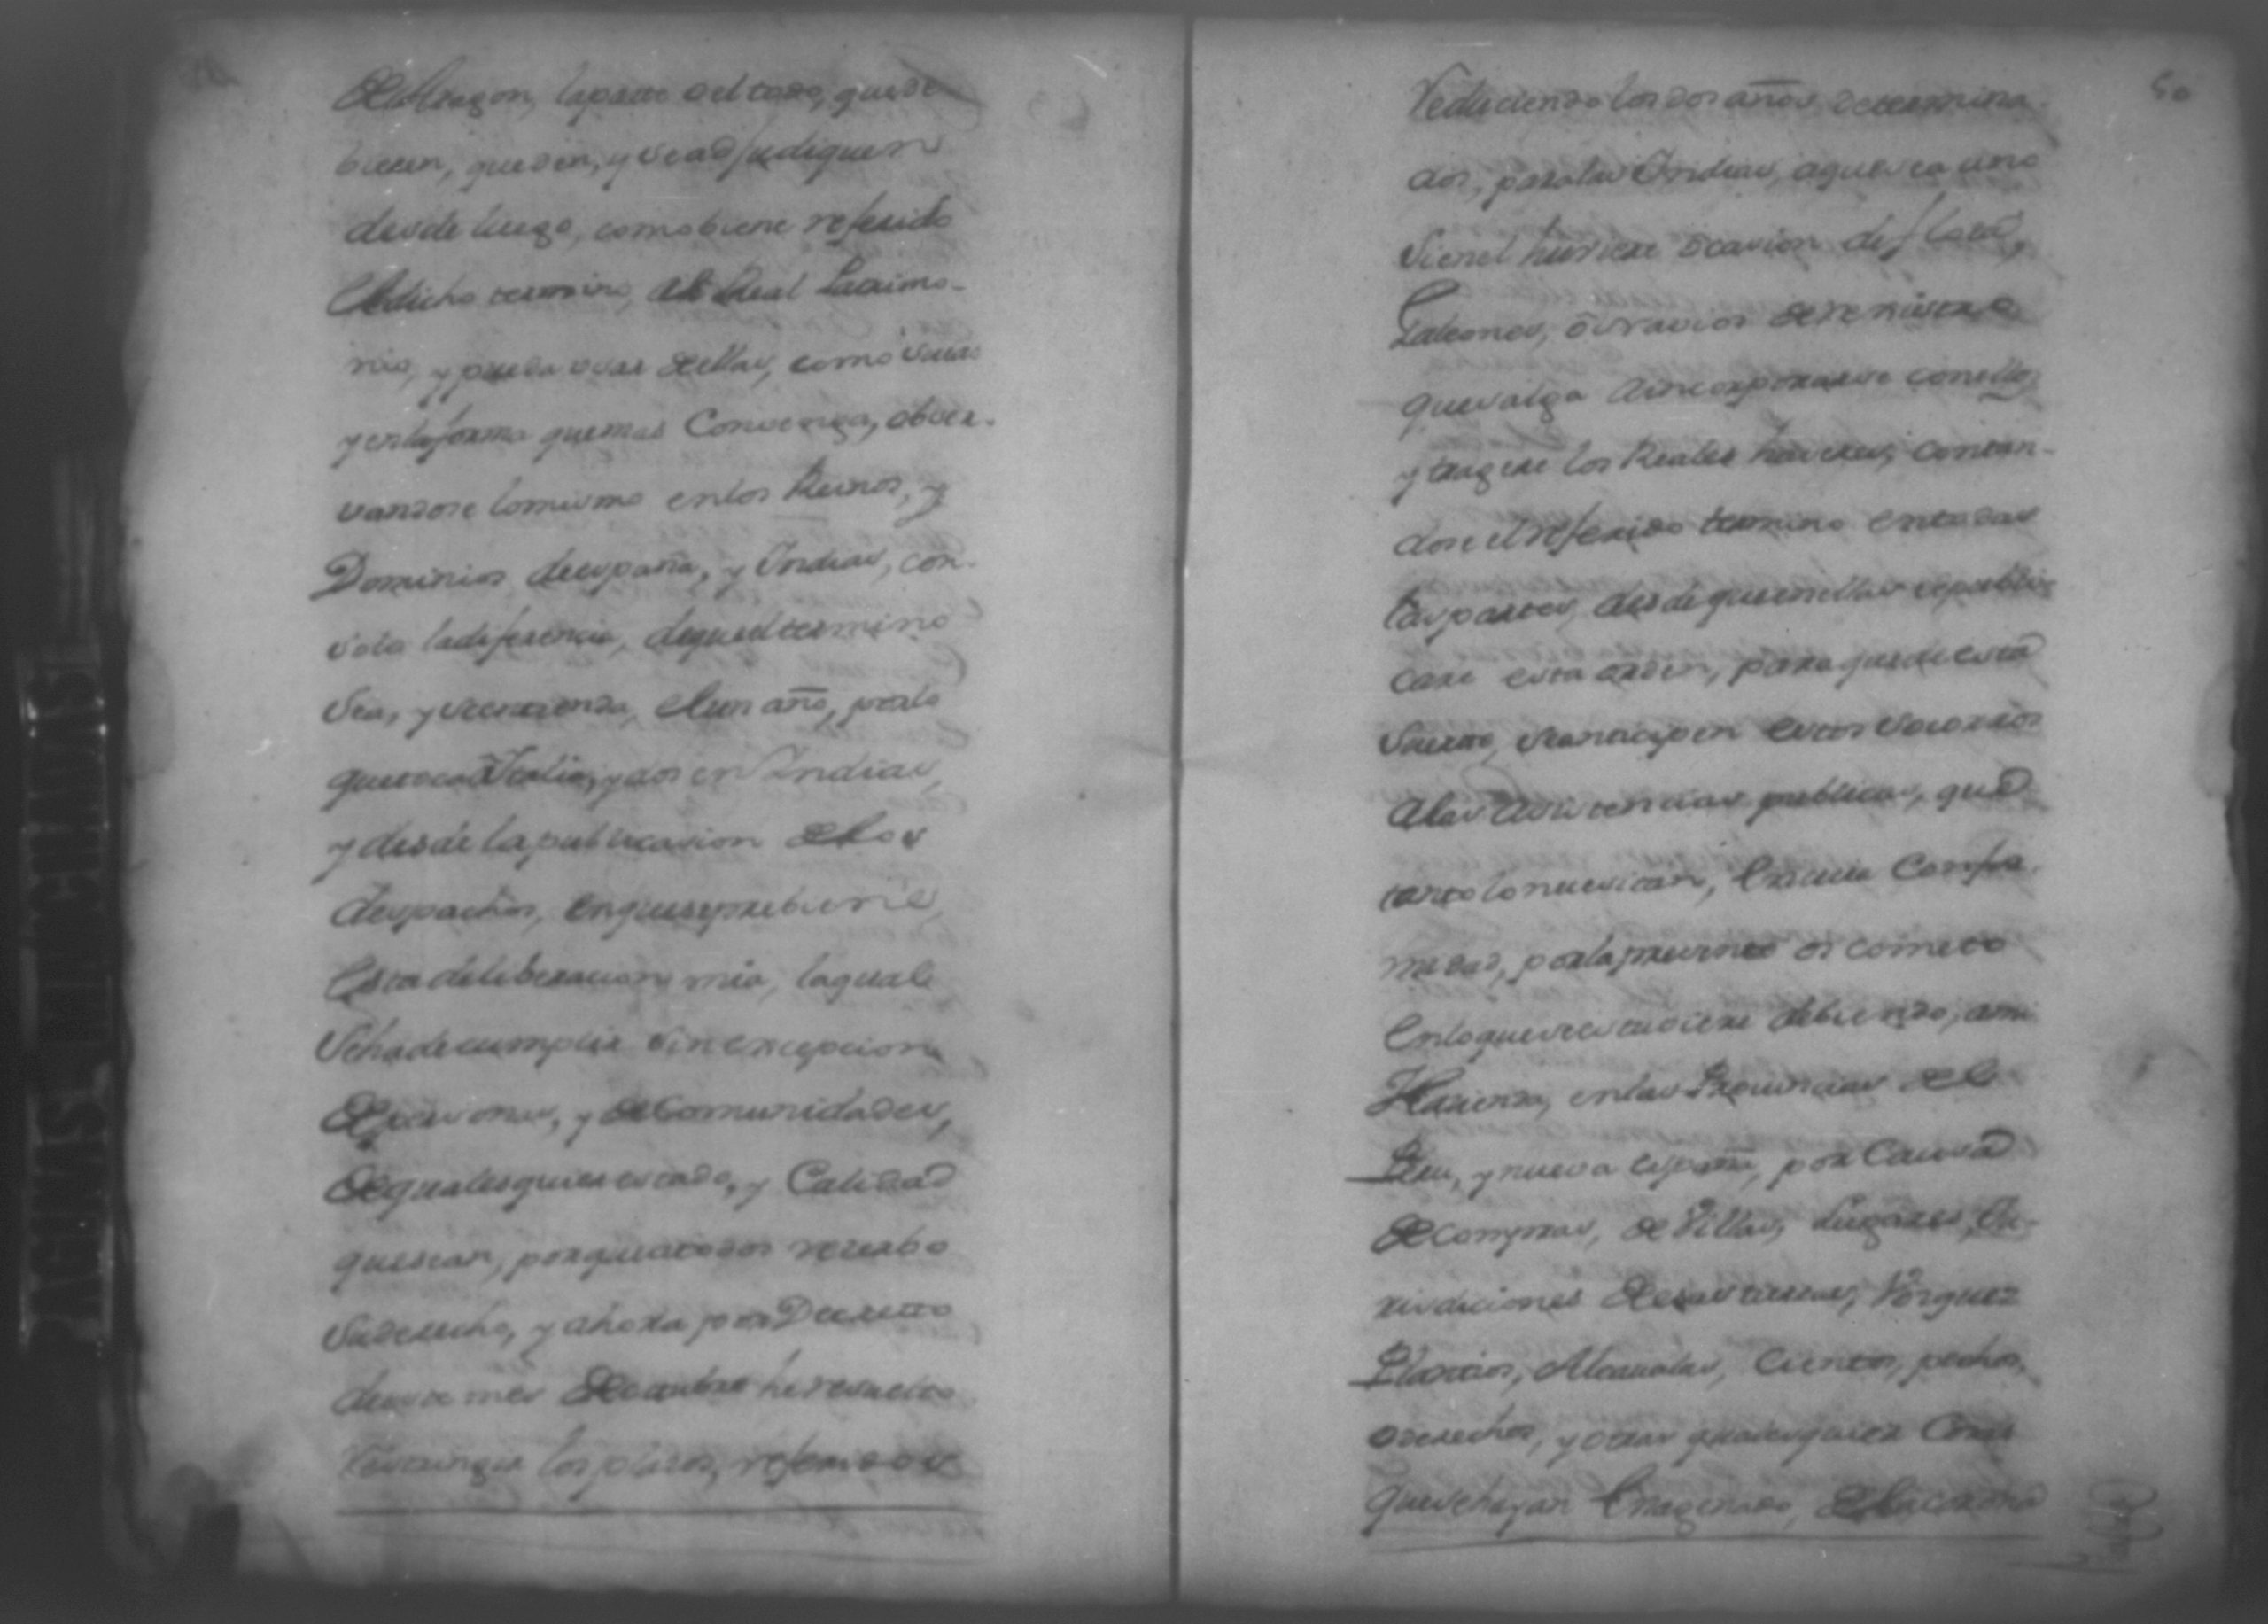 de Aragon, la parte del todo, que de
bieren, queden, y se adjudiquen
desde luego, como biene referido
el dicho termino, al Real Patrimo-
nio, y pueda usar dellas, como suias
y en la forma que mas Convenga, obser-
vandose lo mismo en los Reinos, y
Dominios de españa, y Indias, con
sola la diferencia, de que el termino
sea, y se entienda, de un año, por lo
que toca a Italia, y dos en Indias,
y desde la publicasion de los
despachos, en que se prebiene
esta deliberacion mia, la qual
se ha de cumplir sin excepcion
de personas, y de Comunidades,
de qualesquier estado, y Calidad
que sean, porque a todos reserbo
su derecho, y ahora por Decretto
deste mes de octubre he resuelto
restringir los plazos, referidos
Reduciendo los dos años determina
dos, para las Indias, a que sea uno
si en el huviere ocasion de flota,
Galeones, o navios de rexistro
que salga a incorporarse con ellos
y tragere los Reales haveres, contan-
dose el referido termino en todas
las partes, desde que en ellas se publi-
care esta orden, para que de esta
suerte, se anticipen estos socorros
a las asistencias publicas, que
tanto lo necesitan, En cuia Confor-
midad, por la presente os cometo
en lo que se estuviere debiendo, a mi
Hazienda, en las Provincias del
Peru, y nueva españa, por Causa
de compras, de Villas, Lugares, Ju-
risdiciones Dehesas tierras, Bosques
Plantios, Alcavalas, Cientos, pechos,
derechos, y otras qualesquier Cosas
que se hayan Enagenado, de la corona